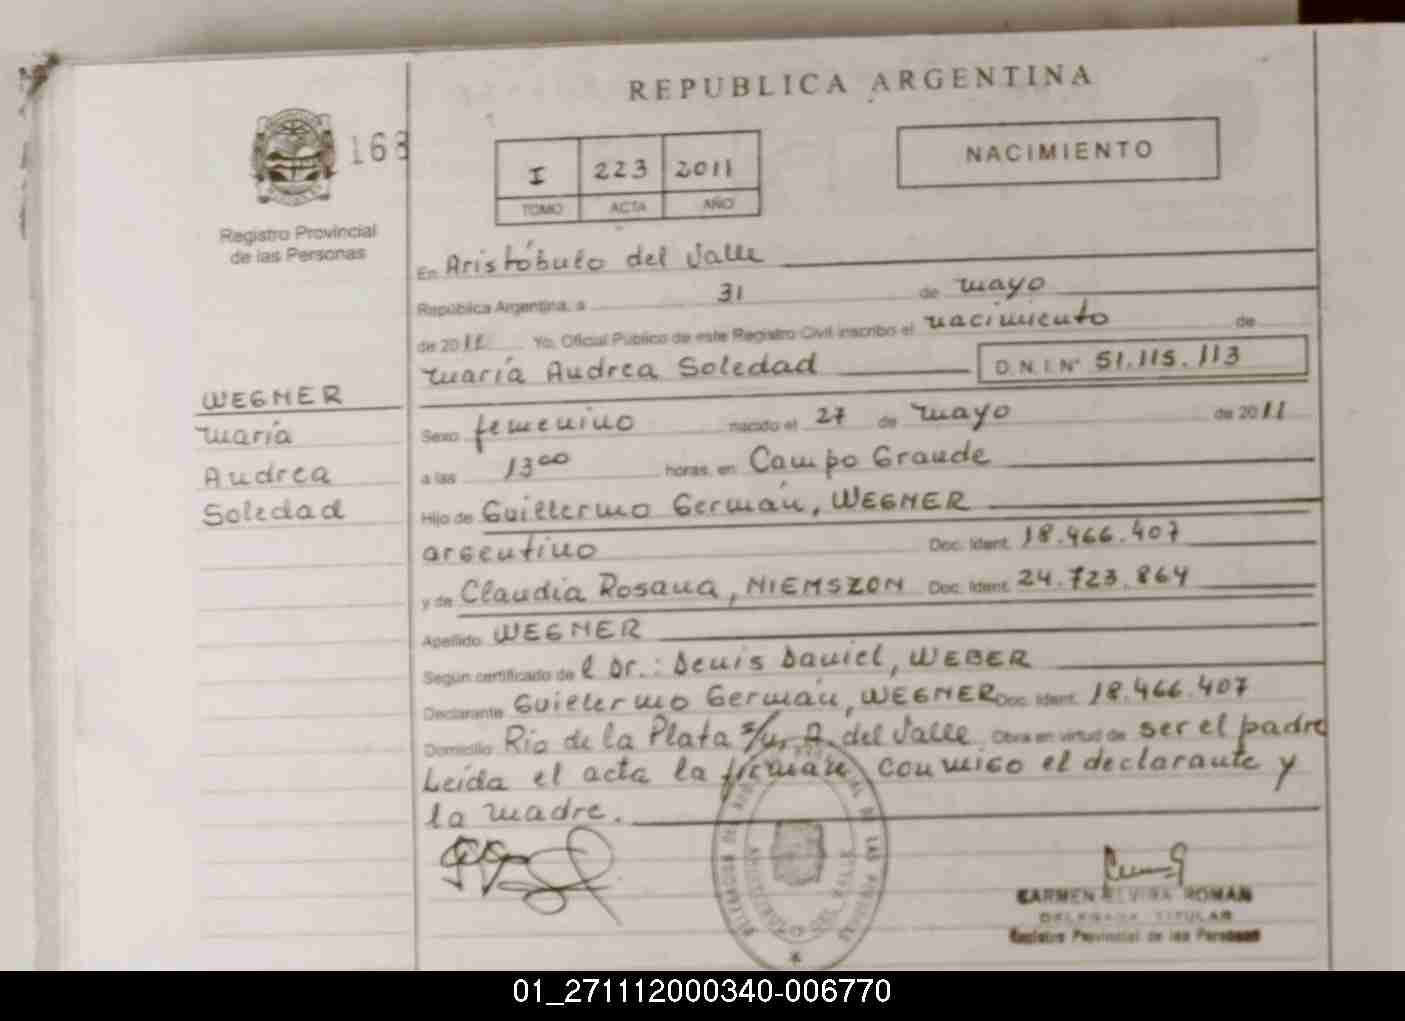 REPUBLICA ARGENTINA
168
I 223 2011
TOMO ACTA AÑO
NACIMIENTO
Registro Provincial
de las Personas
En Aristóbulo del Valle
República Argentina, a 31 de mayo
de 2011 Yo, Oficial Público de este Registro Civil inscribo el nacimiento de
María Andrea Soledad D.N.I. Nº 51.115.113
WEGNER
María
Andrea
Soledad
Sexo femenino nacido el 27 de mayo de 2011
a las 13⁰⁰ horas, en Campo Grande
Hijo de Guillermo Germán, WEGNER
argentino Doc. Ident. 18.466.407
y de Claudia Rosana, NIEMSZON Doc. Ident. 24.723.864
Apellido WEGNER
Según certificado de l Dr.: Denis Daniel, WEBER
Declarante Guillermo Germán, WEGNER Doc. Ident. 18.466.407
Domicilio Río de la Plata s/n, A. del Valle Obra en virtud de ser el padre
Leída el acta la firman, conmigo el declarante y
la madre.
CARMEN ELVIRA ROMAN
DELEGADA TITULAR
Registro Provincial de las Personas
01_271112000340-006770